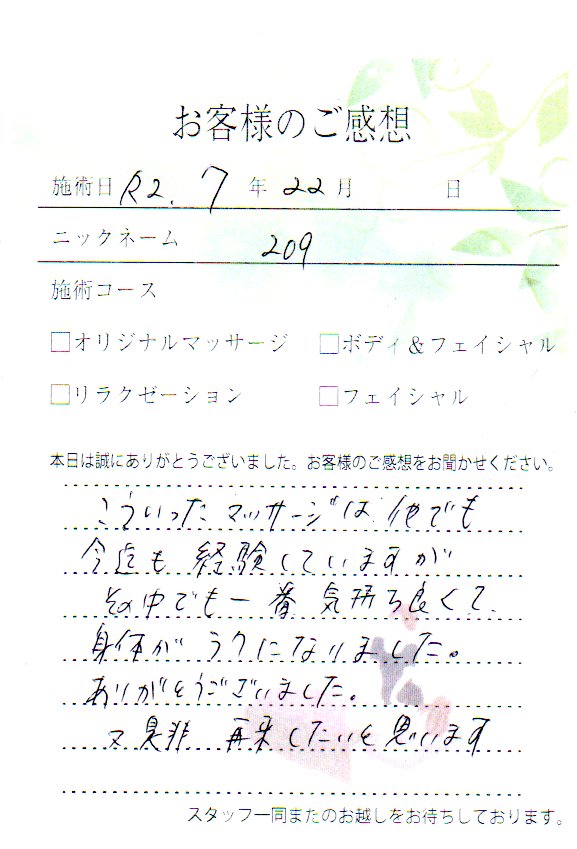 お客様のご感想
施術日 R2. 7 年 22 月 日
ニックネーム 209
施術コース
□オリジナルマッサージ □ボディ&フェイシャル
□リラクゼーション □フェイシャル
本日は誠にありがとうございました。お客様のご感想をお聞かせください。
こういったマッサージは他でも
今迄も経験していますが
その中でも一番気持ち良くて、
身体がラクになりました。
ありがとうございました。
又是非再来したいと思います
スタッフ一同またのお越しをお待ちしております。